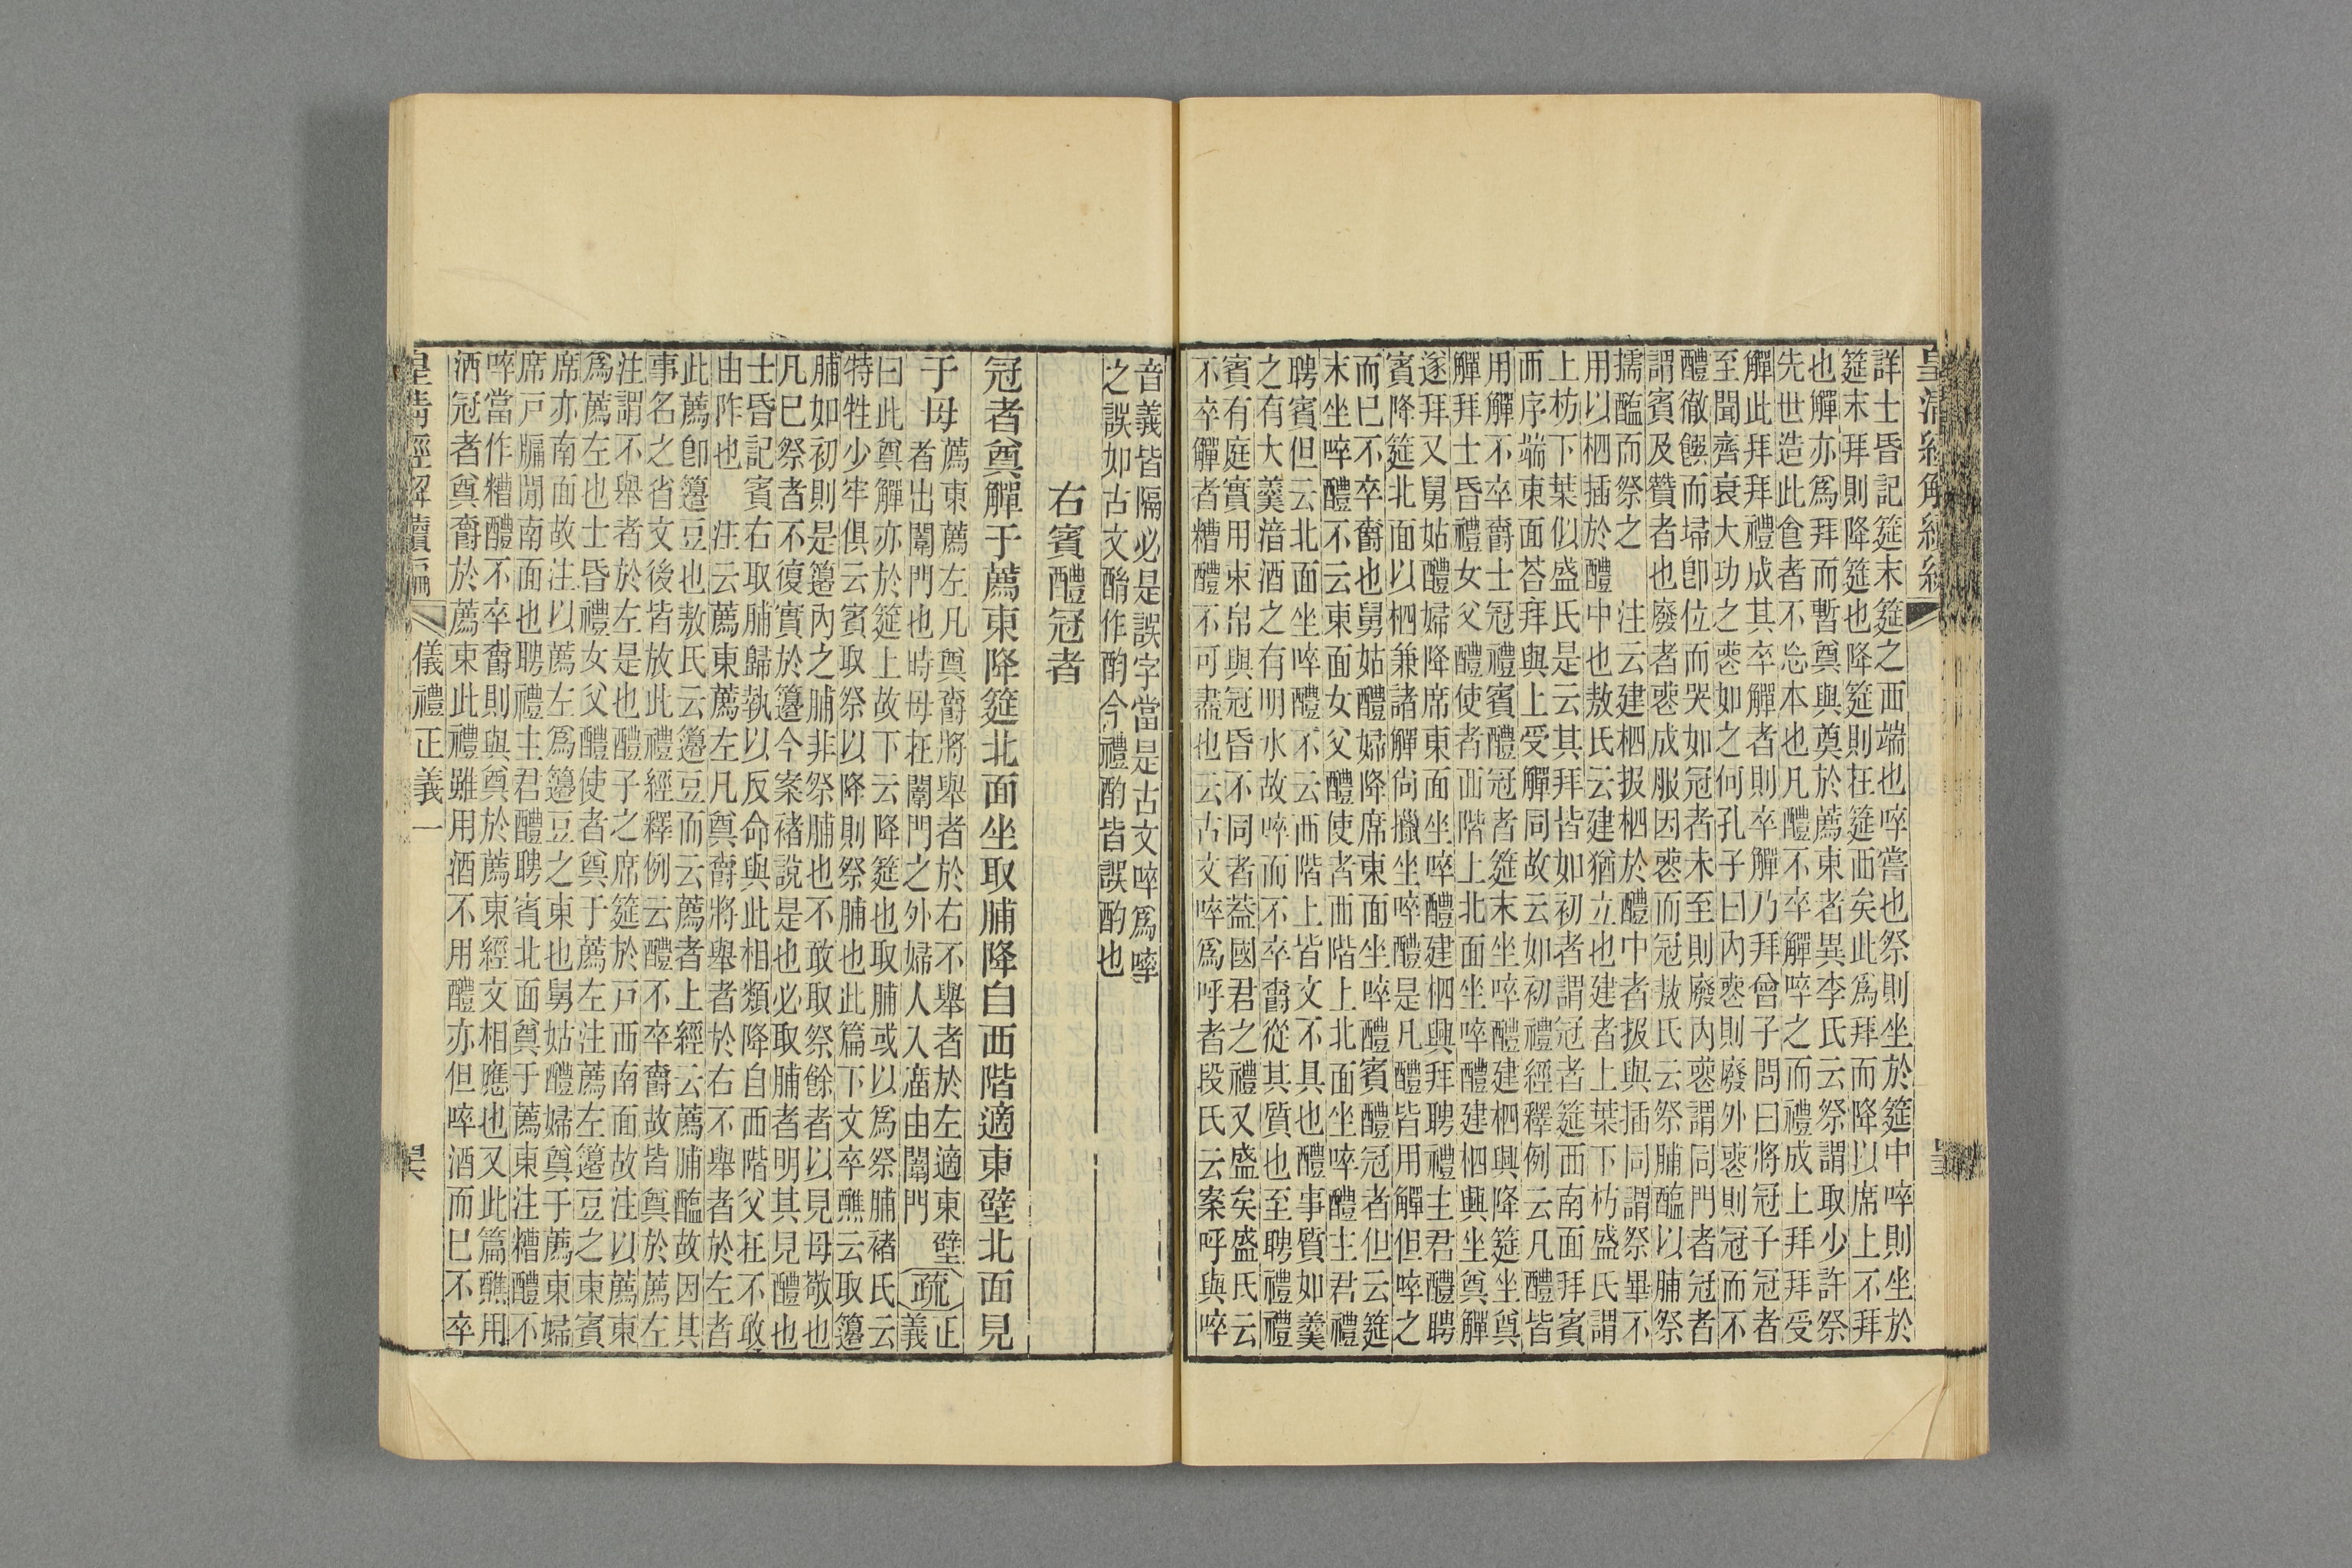 皇清經解續編
詳士昏記筵末筵之西端也啐嘗也祭則坐於筵中啐則坐於
筵末拜則降筵也降筵則在筵西矣此爲拜而降以席上不拜
也觶亦爲拜而暫奠與奠於薦東者異李氏云祭謂取少許祭
先世造此食者不忘本也凡醴不卒觶啐之而禮成上拜拜受
觶此拜拜禮成其卒觶者則卒觶乃拜曾子問曰將冠子冠者
至聞齊衰大功之喪如之何孔子曰內喪則廢外喪則冠而不
醴徹饌而埽卽位而哭如冠者未至則廢內喪謂同門者冠者
謂賓及贊者也廢者喪成服因喪而冠敖氏云祭脯醢以脯祭
擩醢而祭之　注云建柶扱柶於醴中者扱與插同謂祭畢不
用以柶插於醴中也敖氏云建猶立也建者上葉下枋盛氏謂
上枋下葉似盛氏是云其拜皆如初者謂冠者筵西南面拜賓
西序端東面荅拜與上受觶同故云如初禮經釋例云凡醴皆
用觶不卒爵士冠禮賓醴冠者筵末坐啐醴建柶興降筵坐奠
觶拜士昏禮女父醴使者西階上北面坐啐醴建柶興坐奠觶
遂拜又舅姑醴婦降席東面坐啐醴建柶興拜聘禮主君醴聘
賓降筵北面以柶兼諸觶尚擸坐啐醴是凡醴皆用觶但啐之
而已不卒爵也舅姑醴婦降席東面坐啐醴賓醴冠者但云筵
末坐啐醴不云東面女父醴使者西階上北面坐啐醴主君禮
聘賓但云北面坐啐醴不云西階上皆文不具也醴事質如羹
之有大羹湆酒之有明水故啐而不卒爵從其質也至聘禮禮
賓有庭實用束帛與冠昏不同者葢國君之禮又盛矣盛氏云
不卒觶者糟醴不可盡也云古文啐爲呼者段氏云案呼與啐
音義皆隔必是誤字當是古文啐爲啐
之誤如古文酳作酌今禮酌皆誤酌也
右賓醴冠者
冠者奠觶于薦東降筵北面坐取脯降自西階適東壁北面見
于母薦東薦左凡奠爵將舉者於右不舉者於左適東壁
者出闈門也時母在闈門之外婦人入廟由闈門疏正義
曰此奠觶亦於筵上故下云降筵也取脯或以爲祭脯褚氏云
特牲少牢俱云賓取祭以降則祭脯也此篇下文卒醮云取籩
脯如初則是籩內之脯非祭脯也不敢取祭餘者以見母敬也
凡已祭者不復實於籩今案褚說是也必取脯者明其見醴也
士昏記賓右取脯歸執以反命與此相類降自西階父在不敢
由阼也　注云薦東薦左凡奠爵將舉者於右不舉者於左者
此薦卽籩豆也敖氏云籩豆而云薦者上經云薦脯醢故因其
事名之省文後皆放此禮經釋例云醴不卒爵故皆奠於薦左
注謂不舉者於左是也醴子之席筵於戶西南面故注以薦東
爲薦左也士昏禮女父醴使者奠于薦左注薦左籩豆之東賓
席亦南面故注以薦左爲籩豆之東也舅姑醴婦奠于薦東婦
席戶牖閒南面也聘禮主君醴聘賓北面奠于薦東注糟醴不
啐當作糟醴不卒爵則與奠於薦東經文相應也又此篇醮用
酒冠者奠爵於薦東此禮雖用酒不用醴亦但啐酒而已不卒
皇清經解續編　儀禮正義一